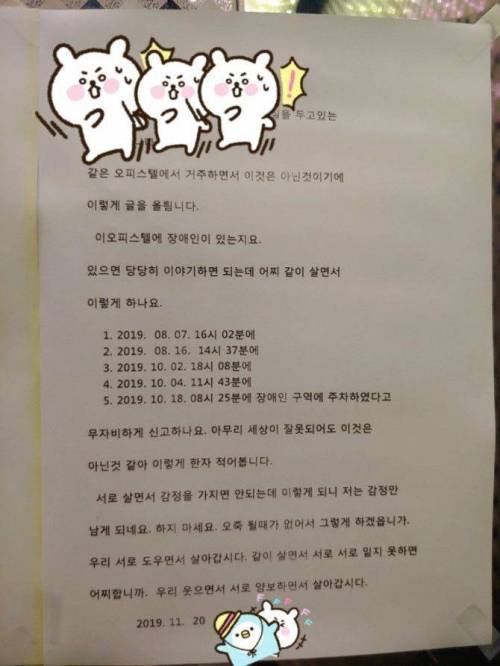 두고있는
같은 오피스텔에서 거주하면서 이것은 아닌것이기에
이렇게 글을 올림니다.
이오피스텔에 장애인이 있는지요.
있으면 당당히 이야기하면 되는데 어찌 같이 살면서
이렇게 하나요.
1. 2019. 08. 07. 16시 02분에
2. 2019. 08. 16. 14시 37분에
3. 2019. 10. 02. 18시 08분에
4. 2019. 10. 04. 11시 43분에
5. 2019. 10. 18. 08시 25분에 장애인 구역에 주차하였다고
무자비하게 신고하나요. 아무리 세상이 잘못되어도 이것은
아닌것 같아 이렇게 한자 적어봅니다.
서로 살면서 감정을 가지면 안되는데 이렇게 되니 저는 감정만
남게 되네요. 하지 마세요. 오죽 될때가 없어서 그렇게 하겠읍니가.
우리 서로 도우면서 살아갑시다. 같이 살면서 서로 서로 밀지 못하면
어찌합니까. 우리 웃으면서 서로 양보하면서 살아갑시다.
2019. 11. 20